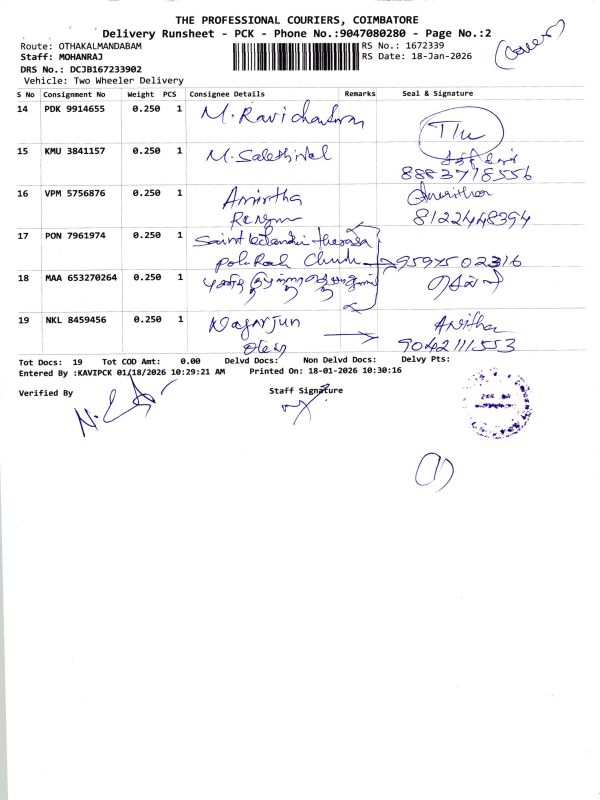 THE PROFESSIONAL COURIERS, COIMBATORE
Delivery Runsheet - PCK - Phone No.:9047080280 - Page No.:2
Route: OTHAKALMANDABAM
RS No.: 1672339
Staff: MOHANRAJ
RS Date: 18-Jan-2026
DRS No.: DCJB167233902
Vehicle: Two Wheeler Delivery
S No Consignment No Weight PCS Consignee Details Remarks Seal & Signature
14 PDK 9914655 0.250 1 M. Ravichandran
15 KMU 3841157 0.250 1 M. Sakthivel
8883718556
16 VPM 5756876 0.250 1 Amirtha
8122448394
17 PON 7961974 0.250 1 Saint
Church 9597502316
18 MAA 653270264 0.250 1
19 NKL 8459456 0.250 1 Nagarjun Anitha
9042111553
Tot Docs: 19 Tot COD Amt: 0.00 Delvd Docs: Non Delvd Docs: Delvy Pts:
Entered By :KAVIPCK 01/18/2026 10:29:21 AM Printed On: 18-01-2026 10:30:16
Verified By Staff Signature
(1)